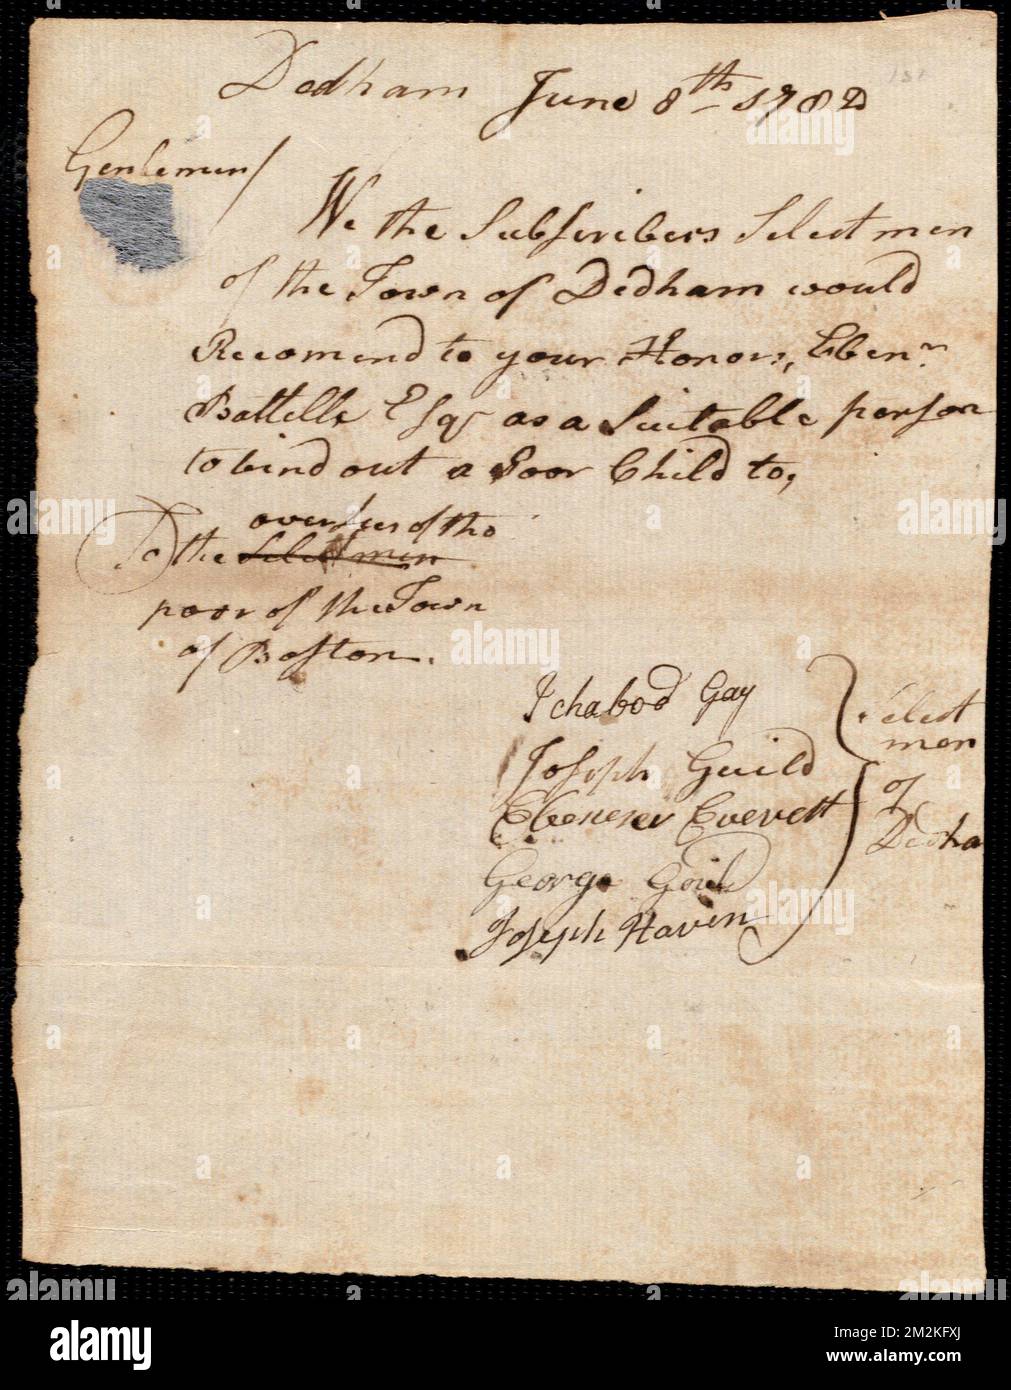 Dedham June 8th 1782
Gentlemen/
We the Subscribers Select men
of the Town of Dedham would
Recomend to your Honors, Ebenr
Battelle Esqr as a Suitable person
to bind out a Poor Child to,
overseers of the
To the Select men
poor of the Town
of Boston.
Ichabod Gay
Joseph Guild
Ebenezer Everett
George Gould
Joseph Haven
Select
men
of
Dedha
alamy
Image ID: 2M2KFXJ
www.alamy.com